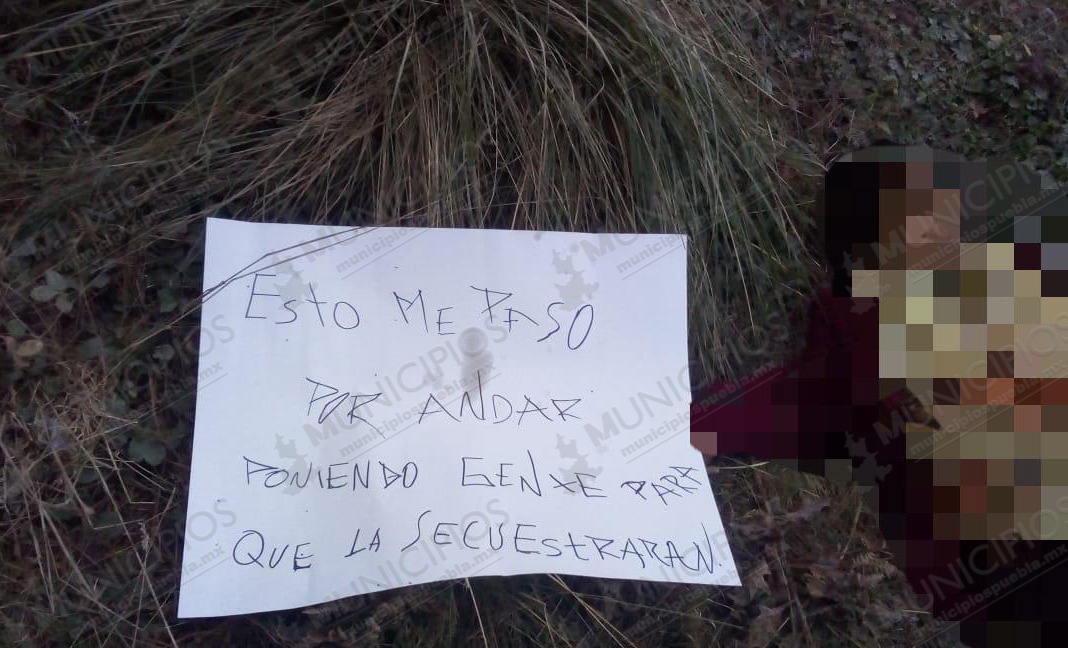 Esto ME PASO
POR ANDAR
PONIENDO GENTE PARA
QUE LA SECUESTRARAN.
MUNICIPIOS
municipiospuebla.mx